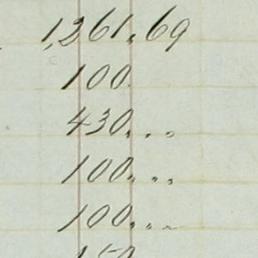 1,261.69
100
430 . . .
100 . . .
100 . . .
150